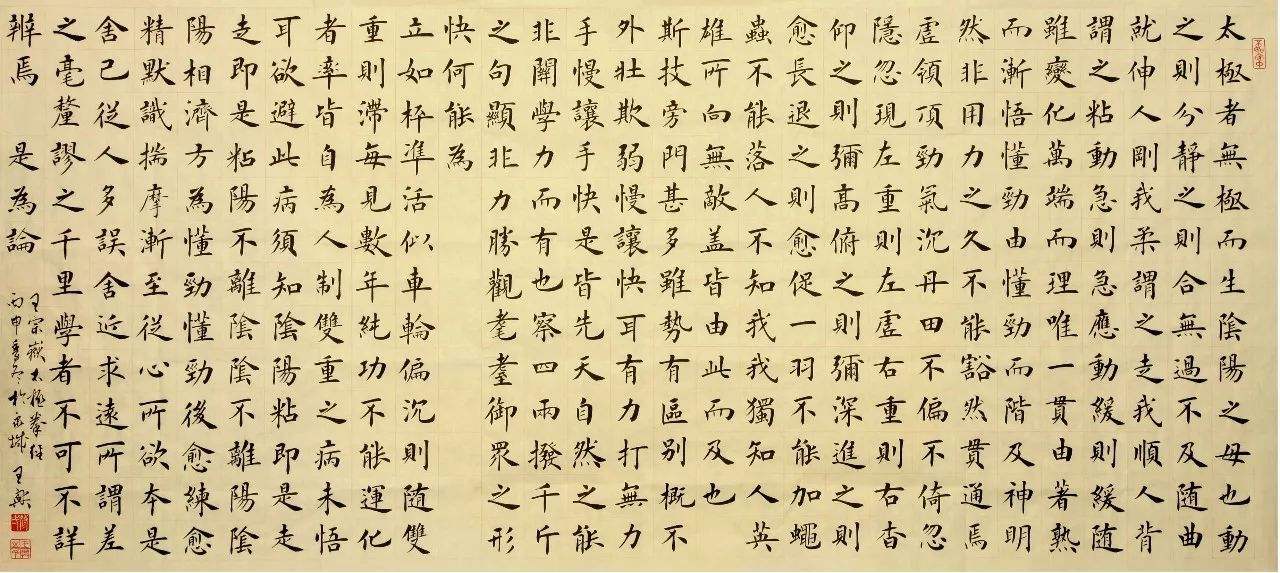 太極者無極而生陰陽之母也動
之則分靜之則合無過不及随曲
就伸人剛我柔謂之走我順人背
謂之粘動急則急應動緩則緩随
雖變化萬端而理唯一貫由著熟
而漸悟懂勁由懂勁而階及神明
然非用力之久不能豁然貫通焉
虛領頂勁氣沉丹田不偏不倚忽
隱忽現左重則左虛右重則右杳
仰之則彌高俯之則彌深進之則
愈長退之則愈促一羽不能加蠅
蟲不能落人不知我我獨知人英
雄所向無敵盖皆由此而及也
斯技旁門甚多雖勢有區别概不
外壯欺弱慢讓快耳有力打無力
手慢讓手快是皆先天自然之能
非關學力而有也察四兩撥千斤
之句顯非力勝觀耄耋御眾之形
快何能為
立如枰準活似車輪偏沉則随雙
重則滯每見數年純功不能運化
者率皆自為人制雙重之病未悟
耳欲避此病須知陰陽粘即是走
走即是粘陽不離陰陰不離陽陰
陽相濟方為懂勁懂勁後愈練愈
精默識揣摩漸至從心所欲本是
舍己從人多誤舍近求遠所謂差
之毫釐謬之千里學者不可不詳
辨焉 是為論
王宗嶽太極拳經
丙申季冬於 王